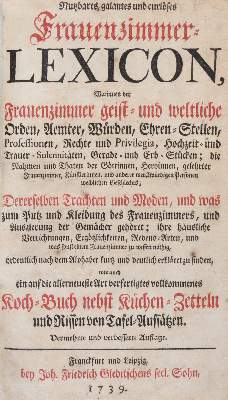 Nutzbares, galantes und curiöses
Frauenzimmer-
LEXICON,
Worinnen der
Frauenzimmer geist- und weltliche
Orden, Aemter, Würden, Ehren-Stellen,
Professionen, Rechte und Privilegia, Hochzeit- und
Trauer-Solennitäten, Gerade- und Erb-Stücken; die
Nahmen und Thaten der Göttinnen, Heroinnen, gelehrter
Frauenzimmer, Künstlerinnen, und anderer merckwürdigen Personen
weiblichen Geschlechts,
Dererselben Trachten und Moden, und was
zum Putz und Kleidung des Frauenzimmers, und
Auszierung der Gemächer gehöret; ihre häusliche
Verrichtungen, Ergötzlichkeiten, Redens-Arten, und
was sonst einem Frauenzimmer zu wissen nöthig,
ordentlich nach dem Alphabet kurtz und deutlich erkläret zu finden,
wie auch
ein auf die allerneueste Art verfertigtes vollkommenes
Koch-Buch nebst Küchen-Zetteln
und Rissen von Tafel-Aufsätzen.
Vermehrte und verbesserte Auflage.
Franckfurt und Leipzig,
bey Joh. Friedrich Gleditschens seel. Sohn,
1739.